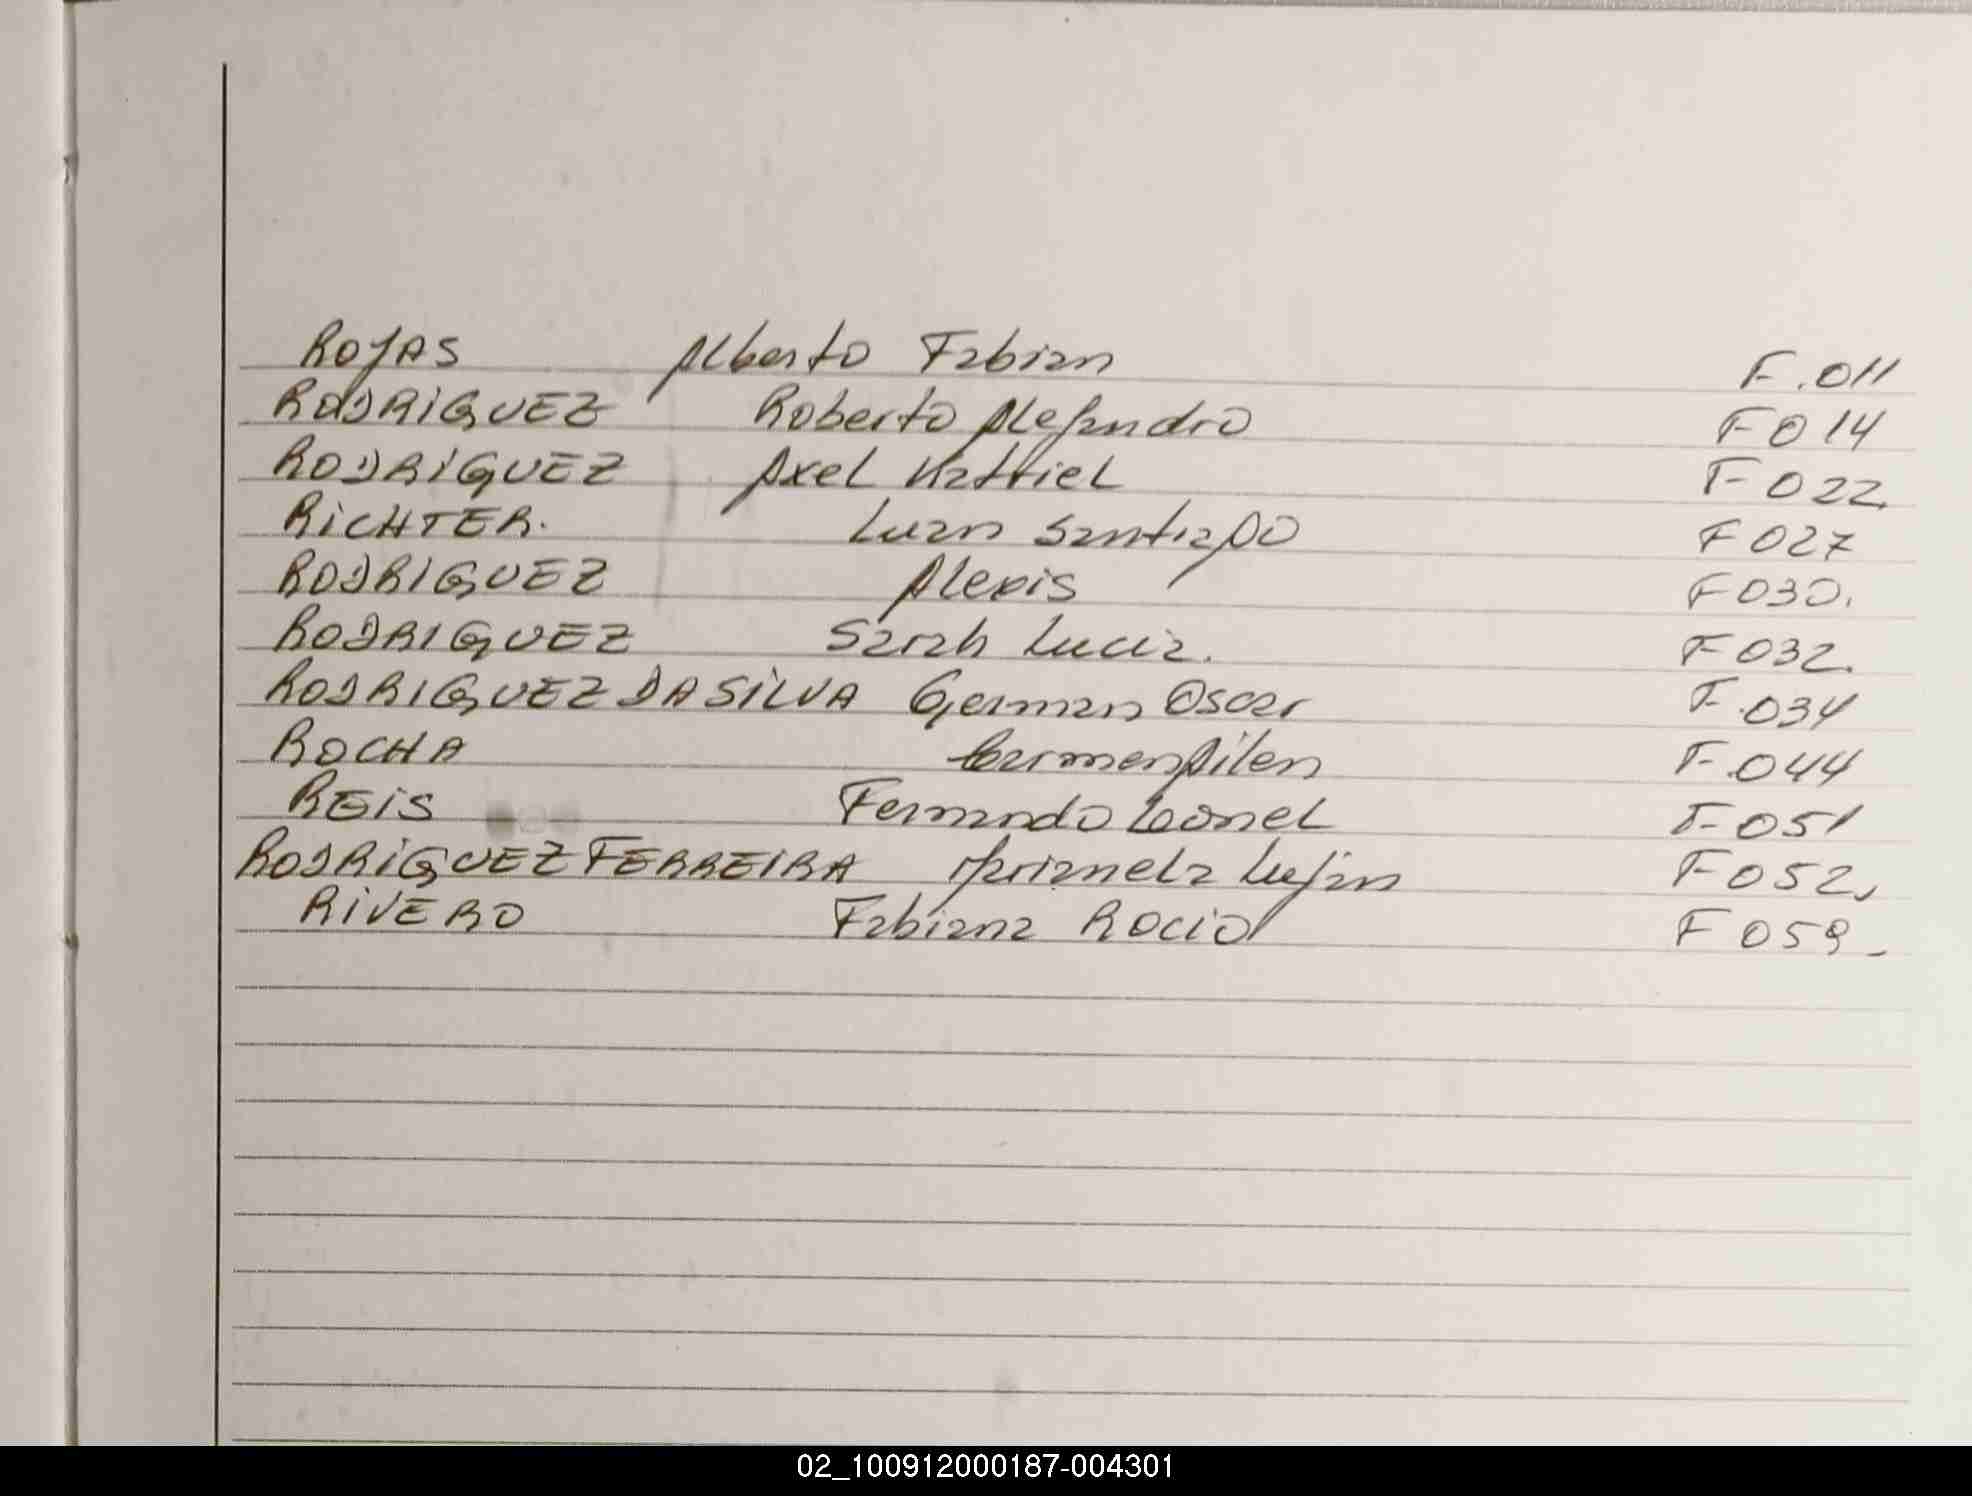 ROJAS Alberto Fabian F.011
RODRIGUEZ Roberto Alejandro F014
RODRIGUEZ Axel F022.
RICHTER. Luan Santiago F027
RODRIGUEZ Alexis F030.
RODRIGUEZ Sarah Lucia. F032.
RODRIGUEZ DA SILVA German Oscar F.034
ROCHA Carmen Ailen F.044
REIS Fernando Leonel F051
RODRIGUEZ FERREIRA Marianela Luján F052,
RIVERO Fabiana Rocio F059-
02_100912000187-004301